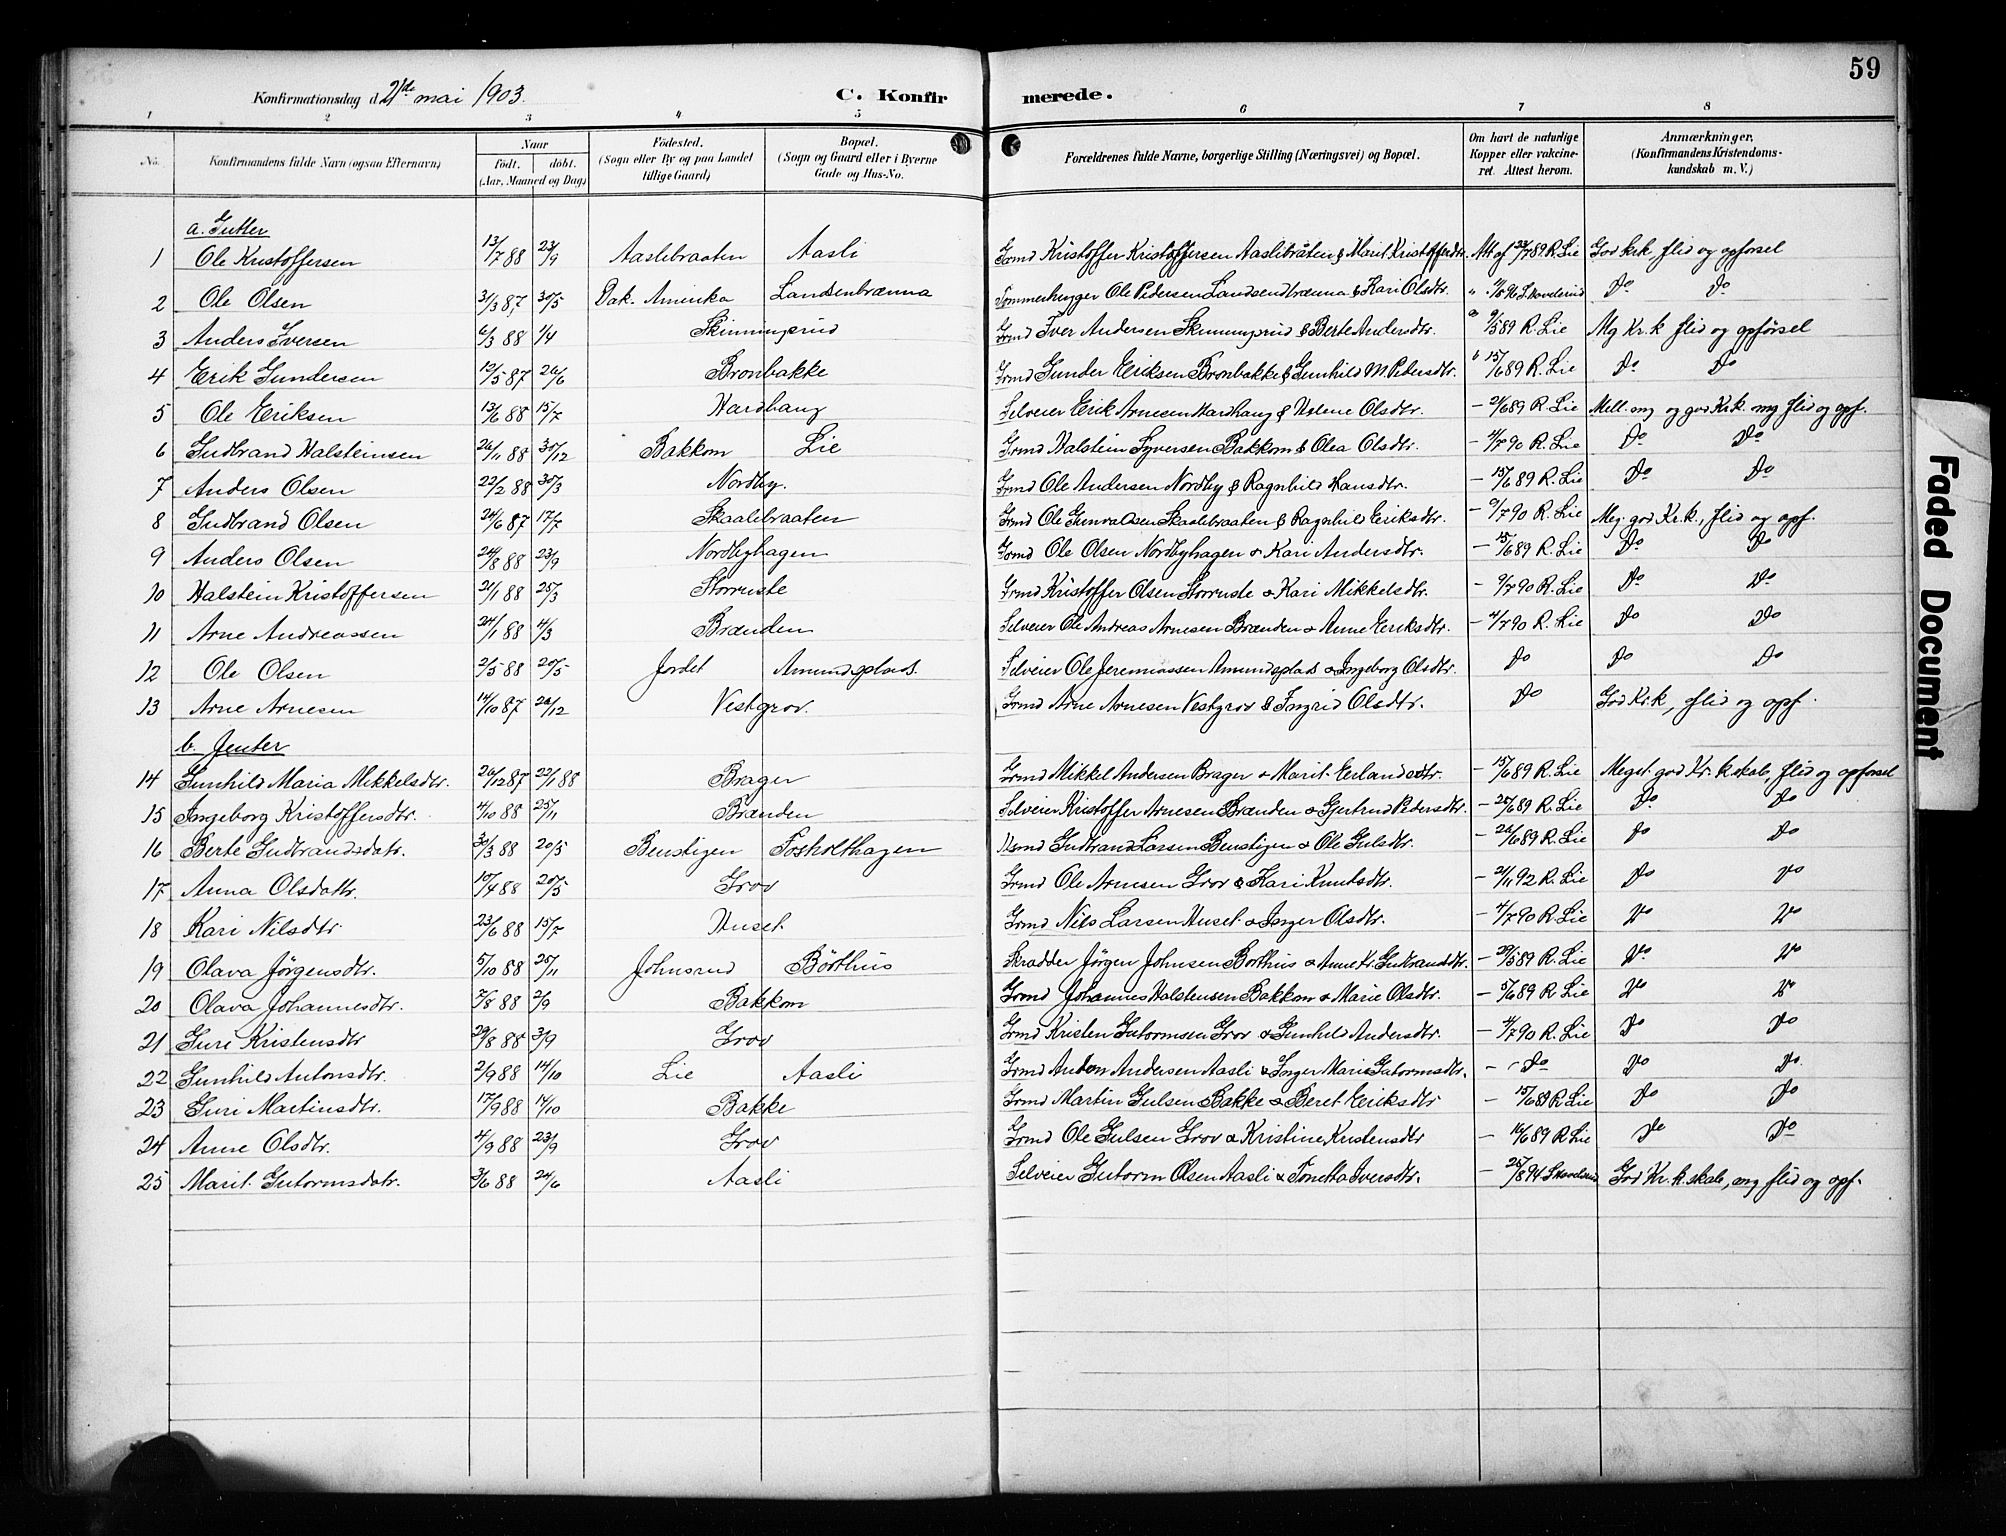 59
Konfirmationsdag d. 21de mai 1903.
C. Konfirmerede.
1 2 3 4 5 6 7 8
No. Konfirmandens fulde Navn (ogsaa Efternavn) Naar født. døbt. (Aar, Maaned og Dag) Fødested. (Sogn eller By og paa Landet tillige Gaard) Bopæl. (Sogn og Gaard eller i Byerne Gade og Hus-No. Forældrenes fulde Navne, borgerlige Stilling (Næringsvei) og Bopæl. Om havt de naturlige Kopper eller vakcineret. Attest herom. Anmærkninger. (Konfirmandens Kristendomskundskab m. V.)
a. Gutter
1 Ole Kristoffersen 13/7 88 23/9 Aaslebraaten Aasli Grmd Kristoffer Kristoffersen Aaslibråten & Marit Kristoffersdtr. Att af 23/7 89 R. Lie God krk, flid og opførsel
2 Ole Olsen 31/3 87, 30/5 Dak. Amerika Landsenbrænna Tømmerhugger Ole Pedersen Landsendbrænna & Kari Olsdtr. Skonderud Do Do
3 Anders Iversen 6/3 88 1/4 Skinningsrud Grmd Iver Andersen Skinningsrud & Berte Andersdtr. 9/5 89 R. Lie Mg Kr.k flid og opførsel
4 Erik Gundersen 12/5 87 26/6 Bronbakke Grmd Gunder Eriksen Bronbakke & Gunhild M. Pedersdtr. 15/6 89 R. Lie Do Do
5 Ole Eriksen 13/6 88 15/7 Hardhaug Selveier Erik Arnesen Hardhaug & Helene Olsdtr. – 21/6 89 R. Lie Mell. mg og god Kr.k. mg flid og opf.
6 Gudbrand Halsteinsen 26/11 88 30/12 Bakkom Lie Grmd Halstein Syversen Bakkom & Olea Olsdtr. – 4/7 90 R. Lie Do Do
7 Anders Olsen 22/2 88 30/3 Nordby. Grmd Ole Andersen Nordby & Ragnhild Hansdtr. – 15/6 89 R. Lie Do Do
8 Gudbrand Olsen 24/6 87 17/7 Skaalebraaten Grmd Ole Gunvaldsen Skaalebraaten & Ragnhild Eriksdtr. – 9/7 90 R. Lie Meg. god Kr.k., flid og opf.
9 Anders Olsen 24/8 88 23/9 Nordbyhagen Grmd Ole Olsen Nordbyhagen & Kari Andersdtr. – 15/6 89 R. Lie Do Do
10 Halstein Kristoffersen 21/1 88 25/3 Storruste Grmd Kristoffer Olsen Storruste & Kari Mikkelsdtr. – 9/7 90 R. Lie Do Do
11 Arne Andreassen 24/1 88 4/3 Brænden Selveier Ole Andreas Arnesen Brænden & Anne Eriksdtr. – 4/7 90 R. Lie Do Do
12 Ole Olsen 2/5 88 20/5 Jordet Amundsplads. Selveier Ole Jeremiassen Amundsplads & Ingeborg Olsdtr. Do Do Do
13 Arne Arnesen 14/10 87 26/12 Vestgrov. Grmd Arne Arnesen Vestgrov & Ingrid Olsdtr. Do God Kr.k, flid og opf.
b. Jenter
14 Gunhild Maria Mikkelsdtr. 26/12 87 22/1 88 Brager Grmd Mikkel Andersen Brager & Marit Erlandsdtr. – 15/6 89 R. Lie Meget god Kr. k skab, flid og opførsel
15 Ingeborg Kristoffersdtr. 4/10 88 25/11 Brænden Selveier Kristoffer Arnesen Brænden & Gjertrud Pedersdtr. – 25/6 89 R. Lie Do Do
16 Berte Gudbrandsdatr. 30/3 88 20/5 Benstigen Fosholthagen Hsmd Gudbrand Larsen Benstigen & Ole Gulsdtr. – 26/6 89 R. Lie Do Do
17 Anna Olsdattr. 10/4 88 20/5 Grov Grmd Ole Arnesen Grov & Kari Knutsdtr. – 21/11 92 R. Lie Do Do
18 Kari Nilsdtr. 23/6 88 15/7 Huset. Grmd Nils Larsen Huset. & Inger Olsdtr. – 4/7 90 R. Lie Do Do
19 Olava Jørgensdtr. 5/10 88 25/11 Johnsrud Børthus Skrædder Jørgen Johnsen Børthus & Anne Kr. Gudbrandsdtr. – 29/5 89 R. Lie Do Do
20 Olava Johannesdtr. 7/8 88 2/9 Bakkom Grmd Johannes Halstensen Bakkom & Marie Olsdtr. – 5/6 89 R. Lie Do Do
21 Guri Kristensdtr 29/8 88 3/9 Grov Grmd Kristen Gutormsen Grov & Gunhild Andersdtr. – 4/7 90 R. Lie Do Do
22 Gunhild Antonsdtr. 2/9 88 14/10 Lie Aasli Grmd Anton Andersen Aasli & Inger Marie Gutormsdtr. – Do Do Do.
23 Guri Martinsdtr. 17/9 88 14/10 Bakke Grmd Martin Gulsen Bakke & Beret Eriksdtr – 15/6 89 R Lie Do Do
24 Anne Olsdtr. 4/9 88 23/9 Grov Grmd Ole Gulsen Grov & Kristine Kristensdtr – 16/6 89 R Lie Do Do
25 Marit Gutormsdatr. 3/6 88 24/6 Aasli Selveier Gutorm Olsen Aasli & Tonetta Iversdtr. – 25/8 94 Skonderud God Kr. k. skab, mg flid og opf.
Faded Document